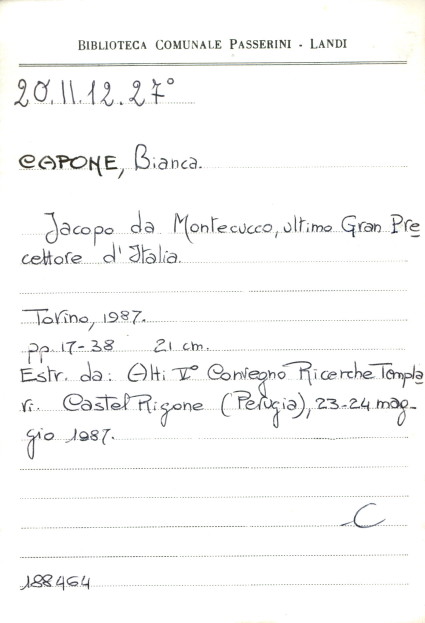 BIBLIOTECA COMUNALE PASSERINI - LANDI
20.II.12.27°
CAPONE, Bianca.
Jacopo da Montecucco, ultimo Gran Pre
cettore d'Italia.
Torino, 1987.
pp. 17-38 21 cm.
Estr. da: Atti V° Convegno Ricerche Templa
ri. Castel Rigone (Perugia), 23-24 mag-
gio 1987.
C
188464